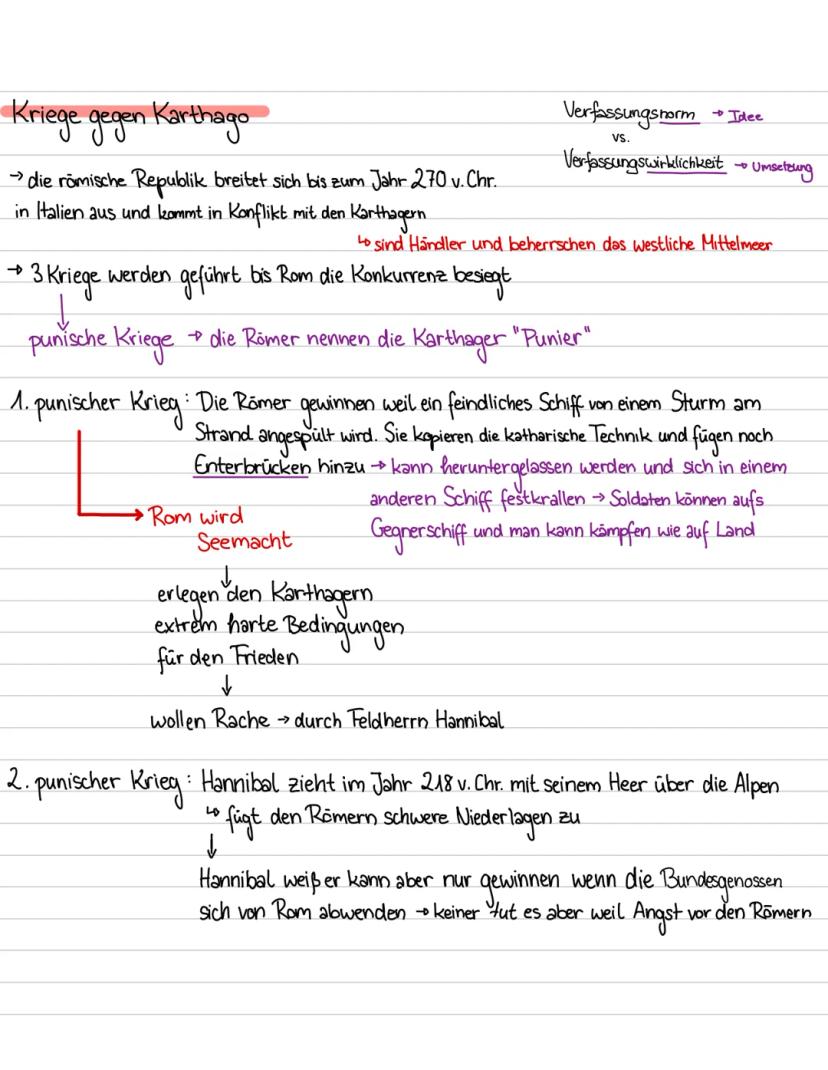 Kriege gegen Karthago
Verfassungsnorm → Idee
vs.
Verfassungswirklichkeit → Umsetzung
→ die römische Republik breitet sich bis zum Jahr 270 v. Chr.
in Italien aus und kommt in Konflikt mit den Karthagern
↳ sind Händler und beherrschen das westliche Mittelmeer
→ 3 Kriege werden geführt bis Rom die Konkurrenz besiegt
↓
punische Kriege → die Römer nennen die Karthager "Punier"
1. punischer Krieg: Die Römer gewinnen weil ein feindliches Schiff von einem Sturm am
Strand angespült wird. Sie kopieren die katharische Technik und fügen noch
Enterbrücken hinzu → kann heruntergelassen werden und sich in einem
anderen Schiff festkrallen → Soldaten können aufs
Gegnerschiff und man kann kämpfen wie auf Land
→ Rom wird
Seemacht
↓
erlegen den Karthagern
extrem harte Bedingungen
für den Frieden
↓
wollen Rache → durch Feldherrn Hannibal
2. punischer Krieg: Hannibal zieht im Jahr 218 v. Chr. mit seinem Heer über die Alpen
↳ fügt den Römern schwere Niederlagen zu
↓
Hannibal weiß er kann aber nur gewinnen wenn die Bundesgenossen
sich von Rom abwenden → keiner tut es aber weil Angst vor den Römern